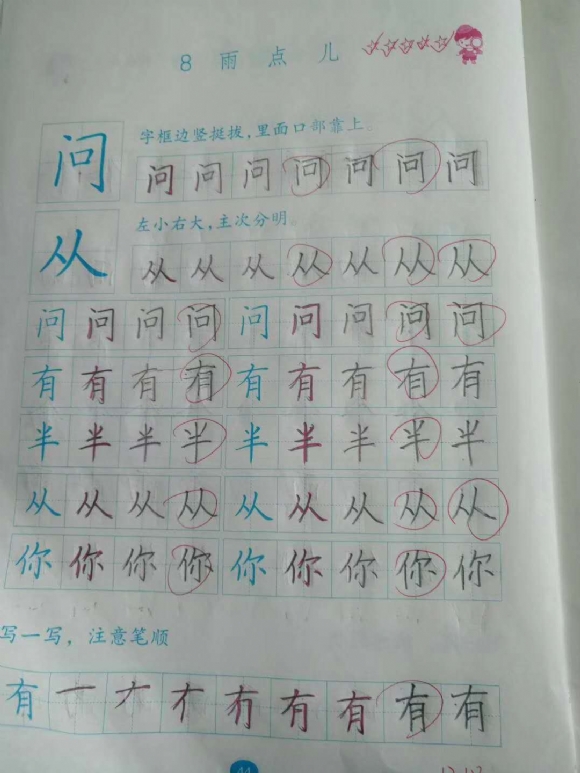 8 雨点儿
字框边竖挺拔,里面口部靠上。
问 问 问 问 问 问 问 问
左小右大,主次分明。
从 从 从 从 从 从 从 从
问 问 问 问 问 问 问 问 问
有 有 有 有 有 有 有 有 有
半 半 半 半 半 半 半 半 半
从 从 从 从 从 从 从 从 从
你 你 你 你 你 你 你 你 你
写一写,注意笔顺
有 一 ナ 有 有 有 有
41